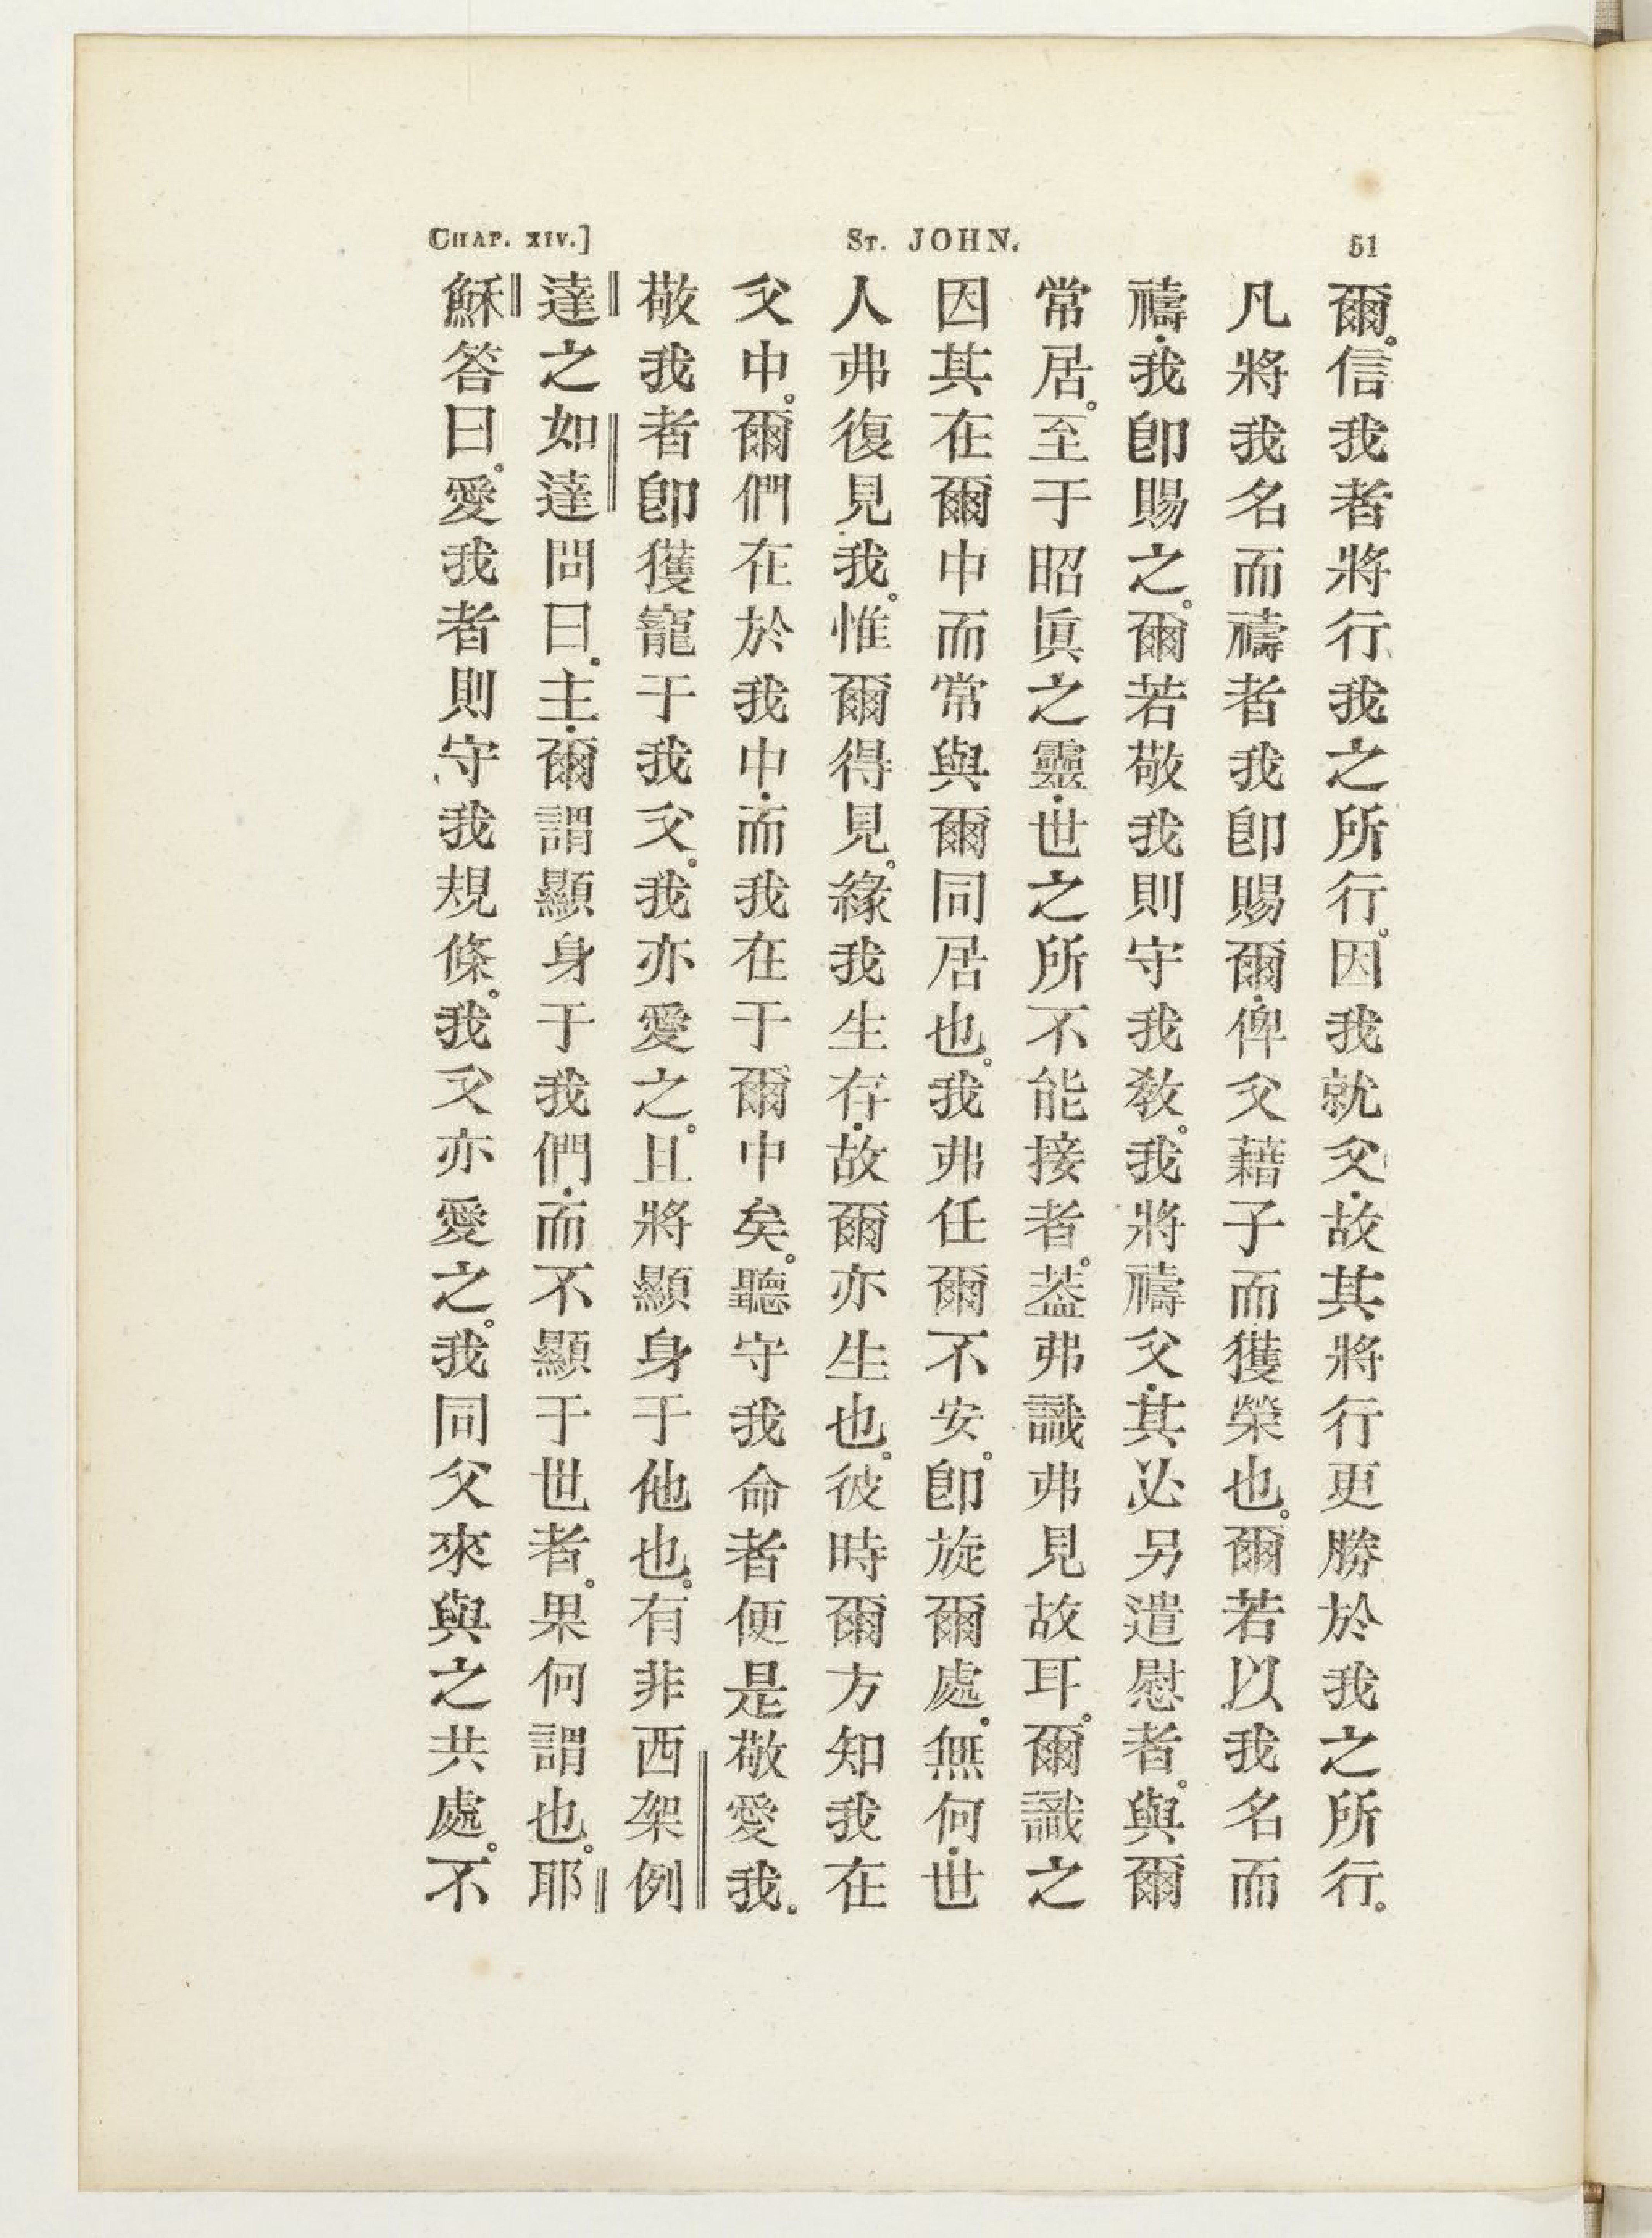 CHAP. XIV.]
ST. JOHN.
51
爾。信我者將行我之所行。因我就父．故其將行更勝於我之所行。
凡將我名而禱者我卽賜爾．俾父藉子而獲榮也。爾若以我名而
禱．我卽賜之。爾若敬我則守我敎。我將禱父．其必另遣慰者。與爾
常居。至于昭眞之靈．世之所不能接者。葢弗識弗見故耳。爾識之
因其在爾中而常與爾同居也。我弗任爾不安。卽旋爾處。無何．世
人弗復見我。惟爾得見。緣我生存．故爾亦生也。彼時爾方知我在
父中。爾們在於我中．而我在于爾中矣。聽守我命者便是敬愛我。
敬我者卽獲寵于我父。我亦愛之。且將顯身于他也。有非西架例
達之如達問曰．主．爾謂顯身于我們．而不顯于世者。果何謂也。耶
穌答曰。愛我者則守我規條。我父亦愛之。我同父來與之共處。不